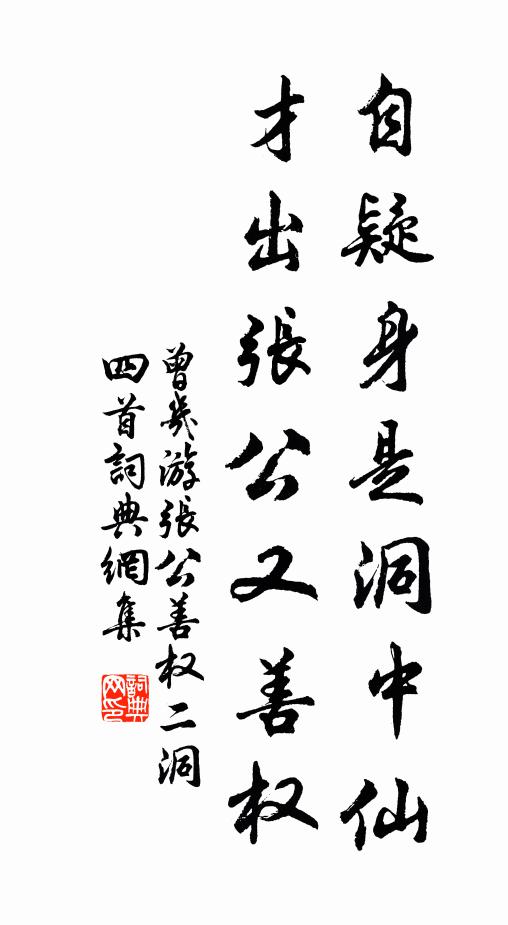 自疑身是洞中仙
才出張公又善权
曾幾游張公善权二洞
四首詞典網集
詞典网印